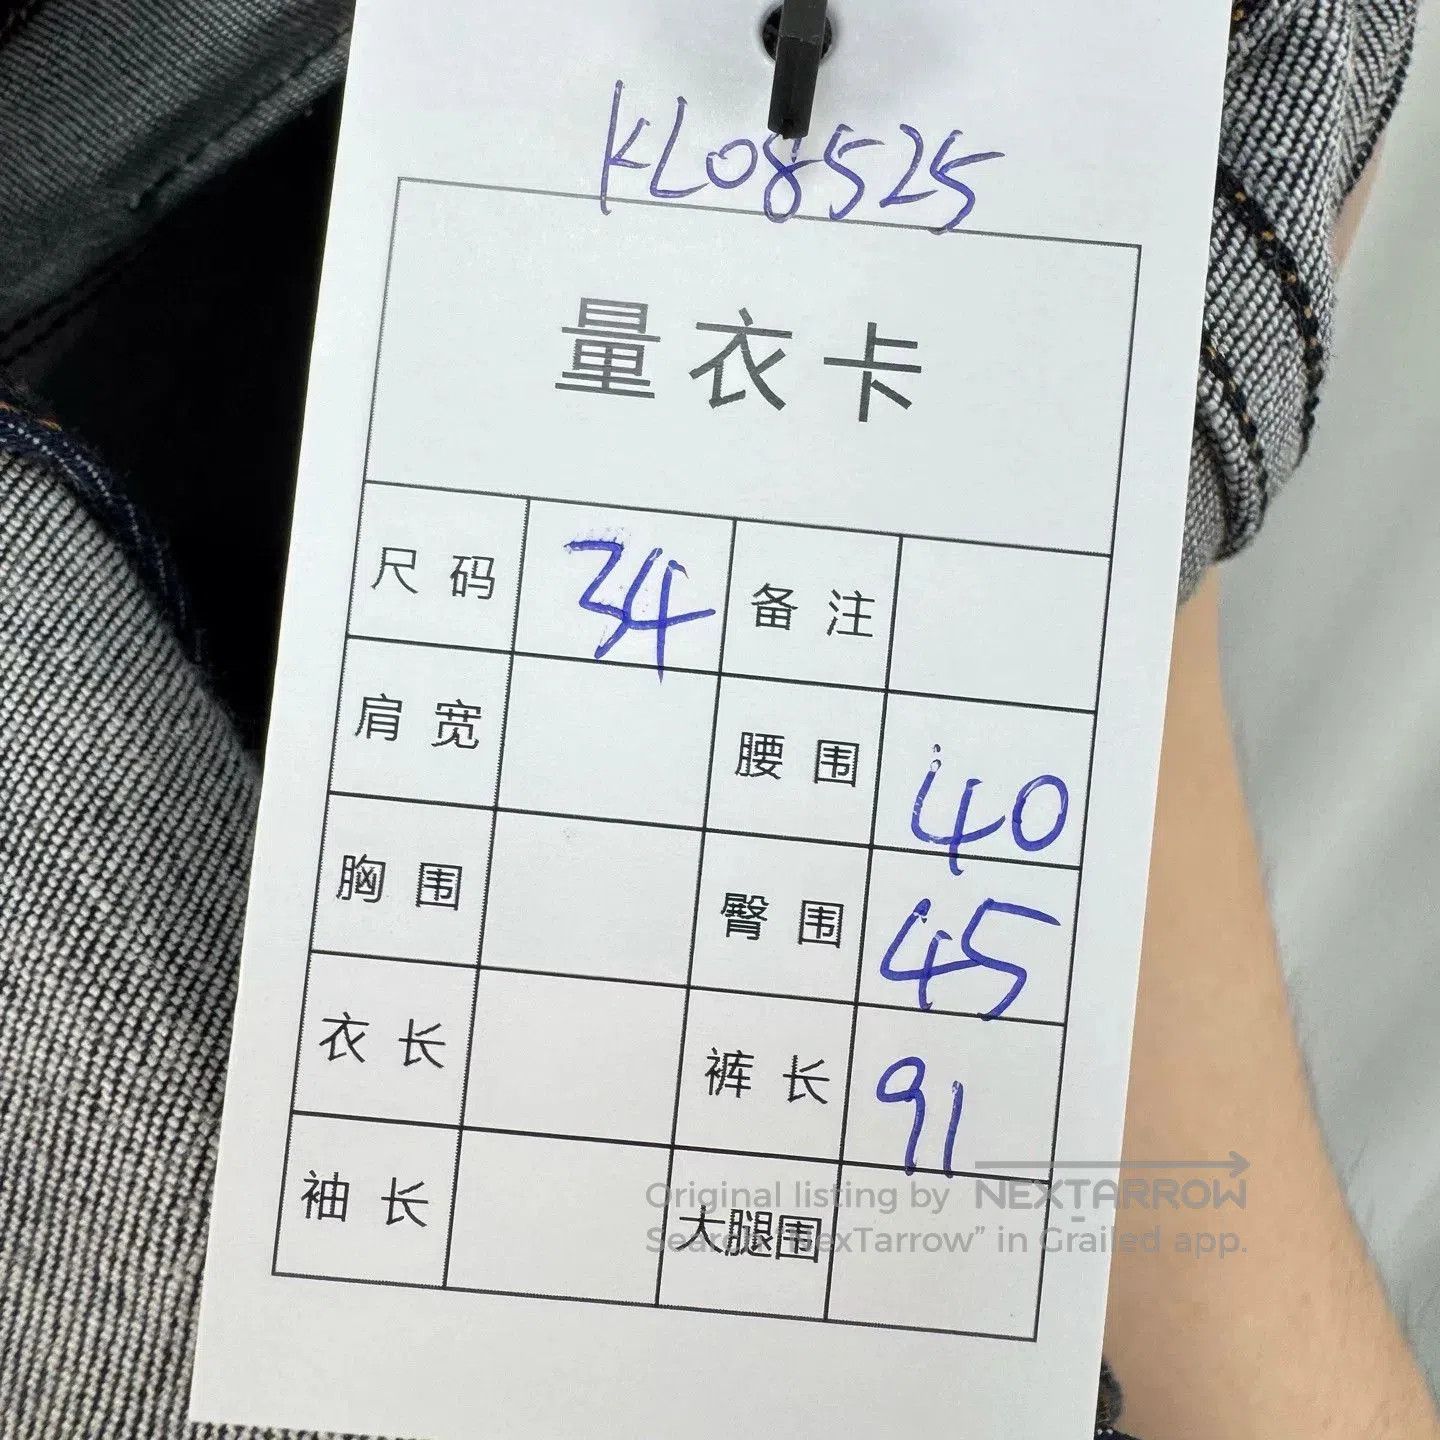 KL08525
量衣卡
尺码 34 备注
肩宽 腰围 40
胸围 臀围 45
衣长 裤长 91
袖长 大腿围
Original listing by NEXTARROW
Search "NexTarrow" in Grailed app.